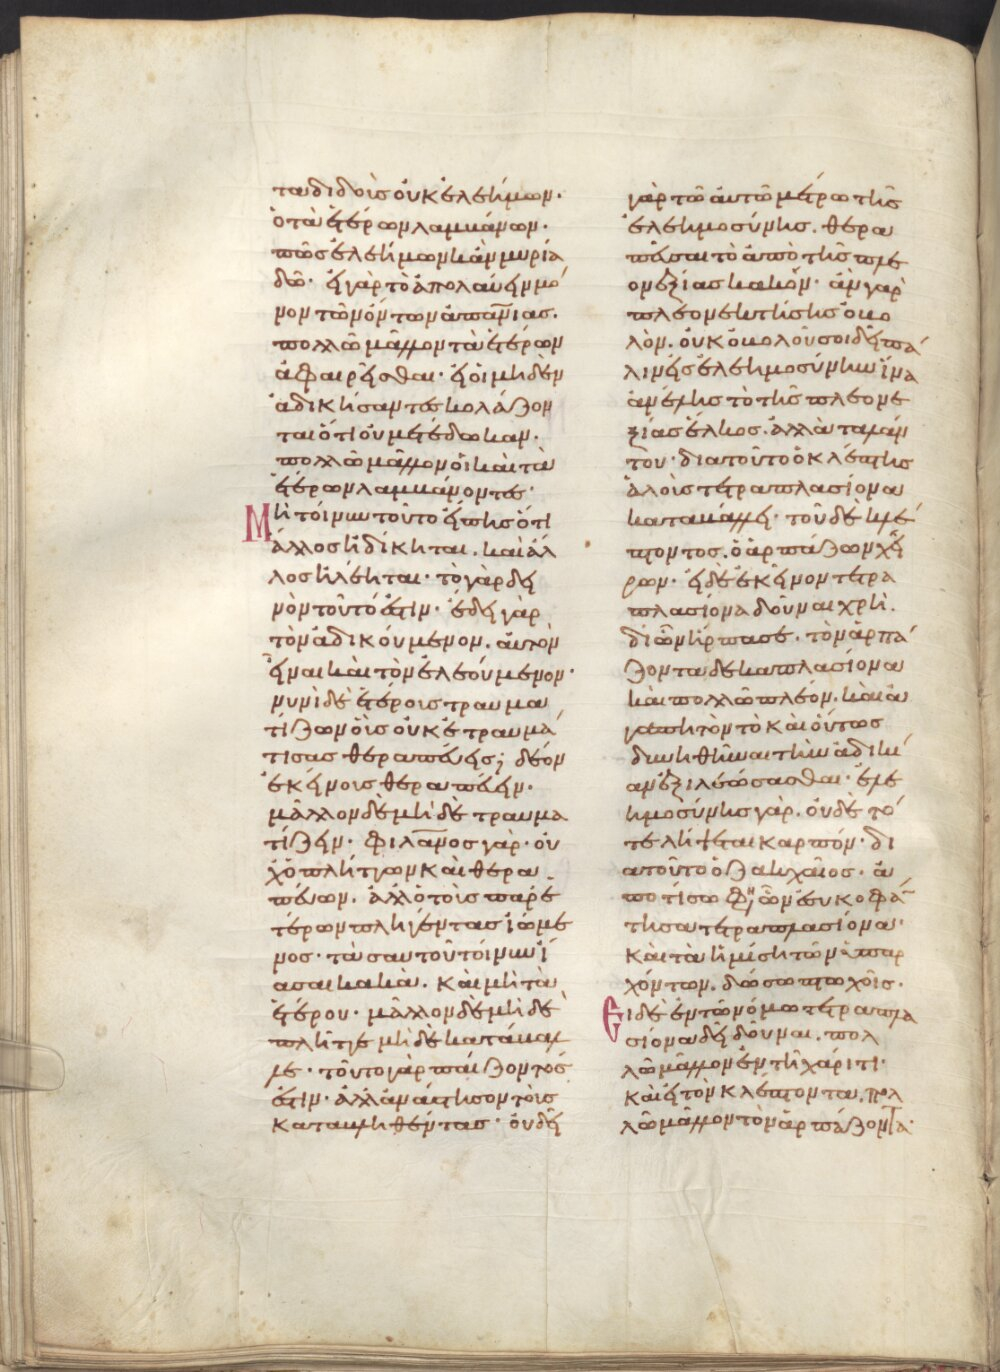 τα διδοὺς οὐκ ἐλεήμων·
ὁ τὰ ἑτέρων λαμβάνων·
πῶς ἐλεήμων κἂν μυρία
δῶ· εἰ γὰρ τὸ ἀπολαύειν μό
νον τῶν ὄντων ἀπανίας.
πολλῶ μᾶλλον τὰ ἑτέρων
ἀφαιρεῖσθαι· εἰ οἱ μηδὲν
ἀδικήσαντες κολάζον
ται ὅτι οὐ μετέδωκαν·
πολλῶ μᾶλλον οἱ καὶ τὰ
ἑτέρων λαμβάνοντες·
Μὴ τοίνυν τοῦτο εἴπης ὅτι
ἄλλος ἠδίκηται. καὶ ἄλ
λος ἠλέηται· τὸ γὰρ δει
νὸν τοῦτό ἐστιν· ἔδει γὰρ
τὸν ἀδικούμενον. αὐτὸν
εἶναι καὶ τὸν ἐλεούμενον·
νυνὶ δὲ ἑτέροις τραυμα
τίζων οἷς οὐκ ἐτραυμά
τισας θεραπεύεις; δέον
ἐκείνοις θεραπεύειν·
μᾶλλον δὲ μηδὲ τραυμα
τίζειν· φιλανος γὰρ· οὐ
χ ὁ πλήττων καὶ θερα
πεύων. ἀλλ' ὁ τοὺς παρ' ἑ
τέρων πληγέντας ἰώμε
νος· τὰ σαυτοῦ τοίνυν ἴ
ασαι κακὰ. καὶ μὴ τὰ
ἑτέρου· μᾶλλον δὲ μηδὲ
πλῆττε μηδὲ κατάβαλ
λε· τοῦτο γὰρ παίζοντός
ἐστιν· ἀλλ' ἀνάστησον τοὺς
καταβληθέντας· οὐδὲ
γὰρ τῶ αὐτῶ μέτρω τῆς
ἐλεημοσύνης. θερα
πεῦσαι τὸ ἀπὸ τῆς πλε
ονεξίας κακόν· ἂν γὰρ
πλεονεκτήσης ὀβο
λόν. οὐκ ὀβολοῦ σοι δεῖ πά
λιν εἰς ἐλεημοσύνην ἵνα
ἀνέλης τὸ τῆς πλεονε
ξίας ἕλκος. ἀλλὰ ταλάν
του· διατοῦτο ὁ κλέπτης
ἁλοὺς τετραπλασίονα
καταβάλλει· τοῦ δὲ κλέ
πτοντος. ὁ ἁρπάζων χεί
ρων· εἰ δὲ ἐκεῖνον τετρα
πλασίονα δοῦναι χρὴ.
δι ὧν ἥρπασε· τὸν ἁρπά
ζοντα δεκαπλασίονα
καὶ πολλῶ πλέον. καὶ ἀ
γαπητὸν τὸ καὶ οὕτως
δυνηθῆναι τὴν ἀδικί
αν ἐξιλεώσασθαι· ἐλε
ημοσύνης γὰρ. οὐδὲ τό
τε λήψεται καρπόν· δι
ατοῦτο ὁ ζακχαῖος· ἀ
ποτίσω φη ὧν ἐσυκοφά
τησα τετραπλασίονα·
καὶ τὰ ἡμίση τῶν ὑπαρ
χόντων. δώσω πτωχοῖς·
Εἰ δὲ ἐν τῶ νόμω τετραπλα
σίονα δεῖ δοῦναι. πολ
λῶ μᾶλλον ἐν τῆ χάριτι·
καὶ εἰ τὸν κλέπτοντα. πολ
λῶ μᾶλλον τὸν ἁρπάζοντα·